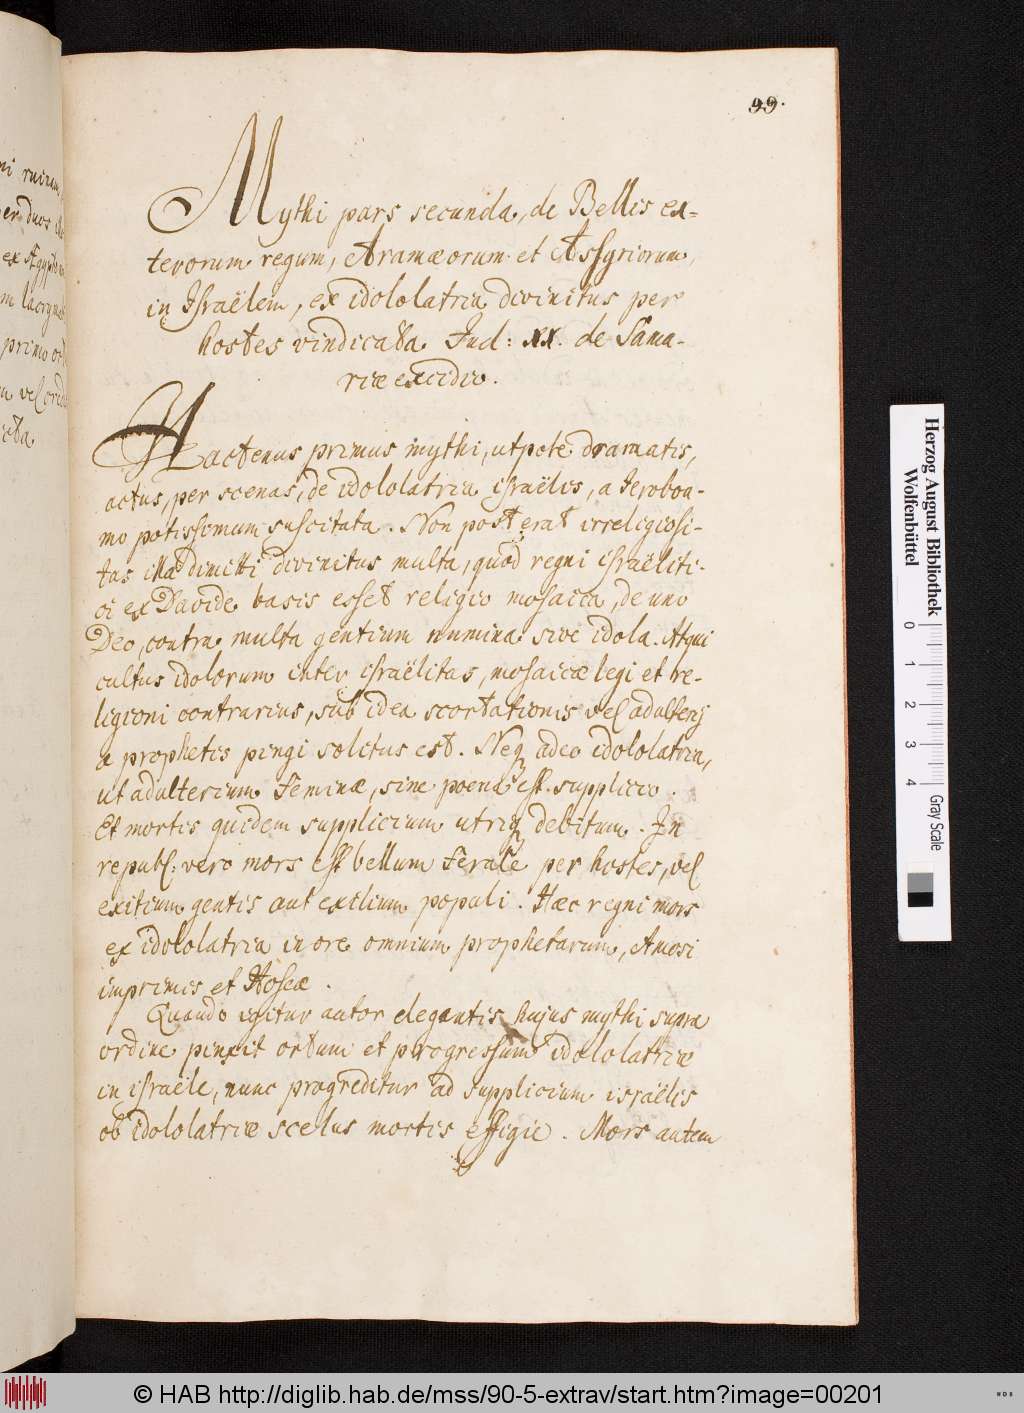 ni ruinam
per duos
ex Ægypto
m lacrym
primo or
u vel ord
icta
99.
Mythi pars secunda, de Bellis ex-
terorum regum, Aramæorum et Assyriorum,
in Israëlem, ex idololatria divinitus per
hostes vindicata Jud: XX. de Sama-
riæ excidio.
Hactenus primus mythi, utpote dramatis,
actus, per scenas, de idololatria israëlis, a Jeroboa-
mo potissimum suscitata. Non poterat irreligiosi-
tas illa dimitti divinitus multa, quod regni israëliti-
ci ex Davide basis esset religio mosaica, de uno
Deo, contra multa gentium numina sive idola. Atqui
cultus idolorum inter israëlitas, mosaicæ legi et re-
ligioni contrarius, sub idea scortationis vel adulterij
a prophetis pingi solitus est. Neq adeo idololatria,
ut adulterium feminæ, sine poena est. supplicio.
Et mortis quidem supplicium utriq debitum. In
republ: vero mors est bellum ferale per hostes, vel
exitium gentis aut exilium populi. Hæc regni mors
ex idololatria in ore omnium prophetarum, Amosi
imprimis et Hoseæ.
Quando igitur autor elegantis hujus mythi supra
ordine pinxit ortum et progressum idololatriæ
in israële, nunc progreditur ad supplicium israëlis
ob idololatriæ scelus mortis effigie. Mors autem
Herzog August Bibliothek
Wolfenbüttel
0 1 2 3 4
Gray Scale
© HAB http://diglib.hab.de/mss/90-5-extrav/start.htm?image=00201
WDB